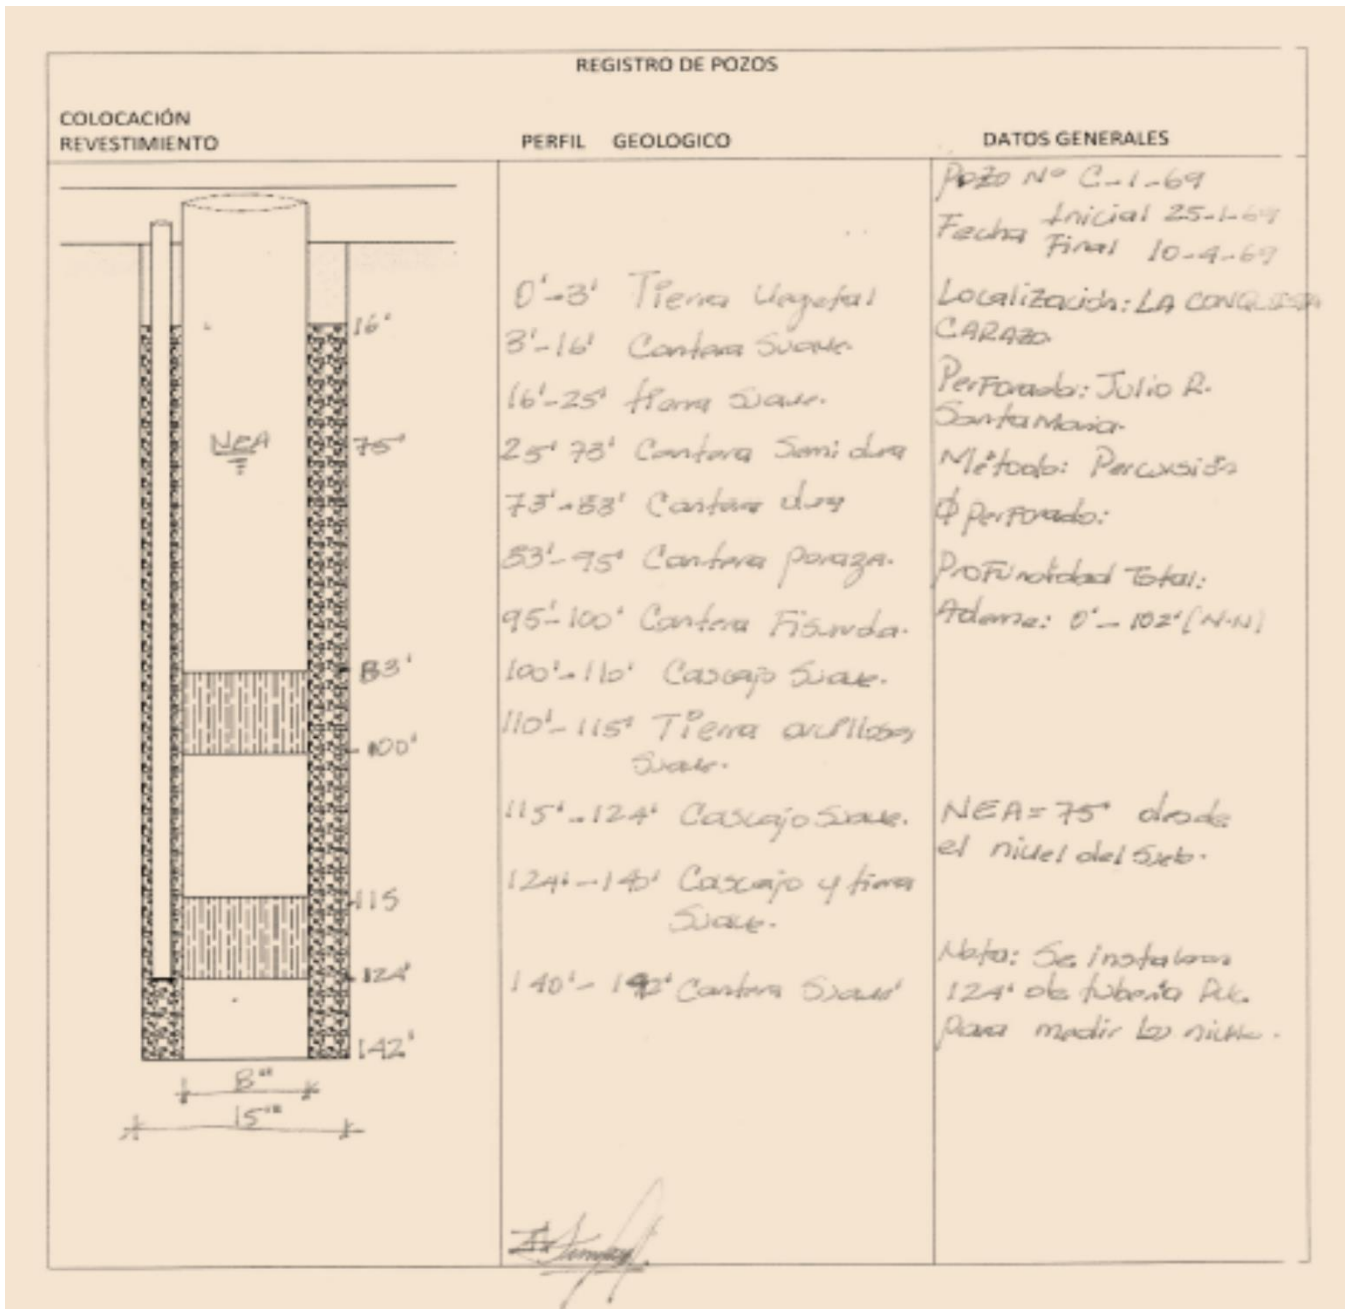 REGISTRO DE POZOS
COLOCACIÓN
REVESTIMIENTO
PERFIL GEOLOGICO
DATOS GENERALES
16'
NEA
75'
83'
100'
115
124'
142'
8"
15"
0'-3' Tierra Vegetal
3'-16' Cantera Suave
16'-25' tierra suave.
25' 73' Cantera Semi dura
73'-83' Cantera dura
83'-95' Cantera poroza.
95'-100' Cantera Fisurada.
100'-110' Cascajo Suave.
110'-115' Tierra arcillosa
Suave.
115'-124' Cascajo Suave.
124'-140' Cascajo y tierra
Suave.
140'- 142' Cantera Suave
Pozo Nº C-1-69
Fecha Inicial 25-1-69
Final 10-4-69
Localización: LA CONQUISTA
CARAZO
Perforado: Julio R.
Santa Maria.
Método: Percusión
Ø perforado:
Profundidad Total:
Ademe: 0'- 102' (N-N)
NEA= 75' desde
el nivel del Suelo.
Nota: Se instalaron
124' de tubería Pvc.
para medir los nivel.